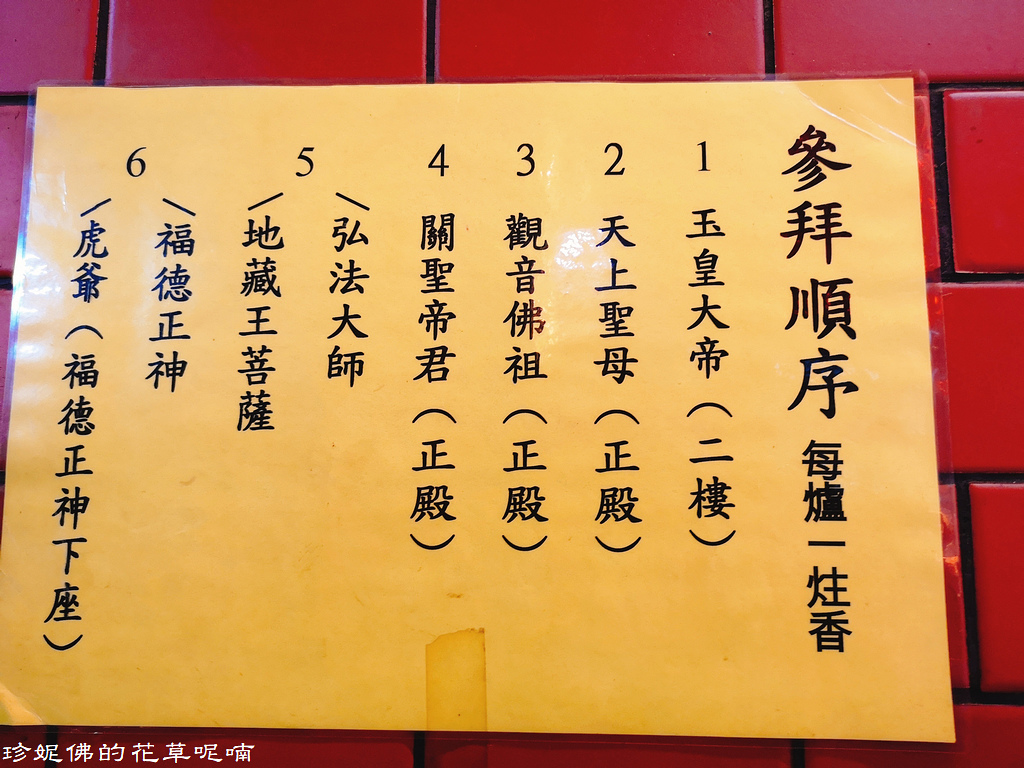 參拜順序 每爐一炷香
1 玉皇大帝（二樓）
2 天上聖母（正殿）
3 觀音佛祖（正殿）
4 關聖帝君（正殿）
5
弘法大師
地藏王菩薩
6
福德正神
虎爺（福德正神下座）
珍妮佛的花草呢喃